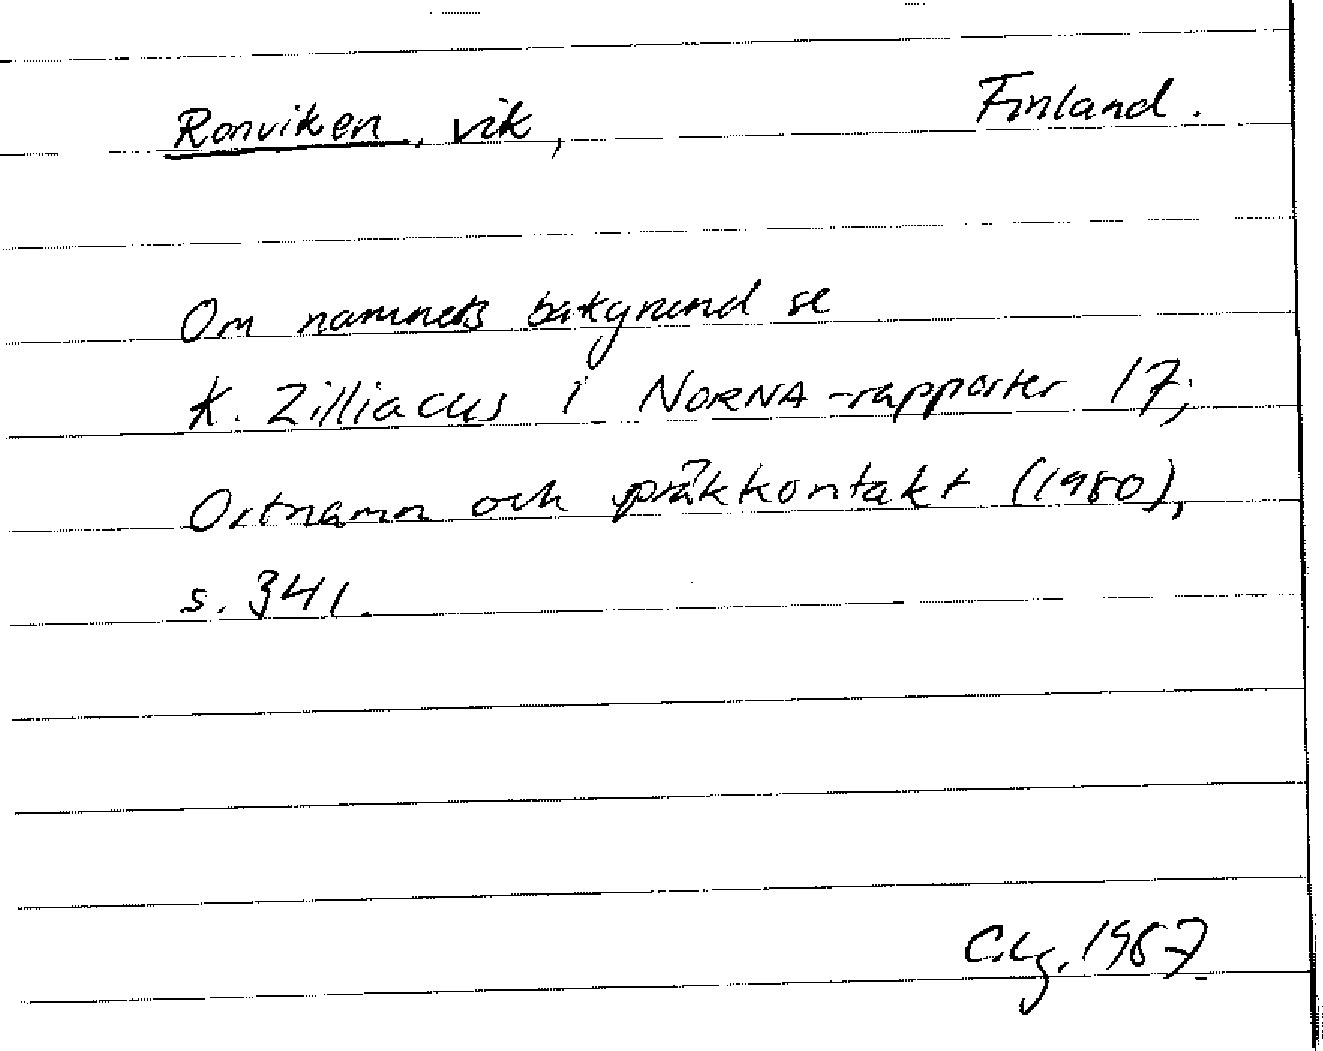 Ronviken, vik, Finland.
Om namnets bakgrund se
K. Zilliacus i NORNA-rapporter 17;
Ortnamn och språkkontakt (1980),
s. 341.
C.Lg. 1987